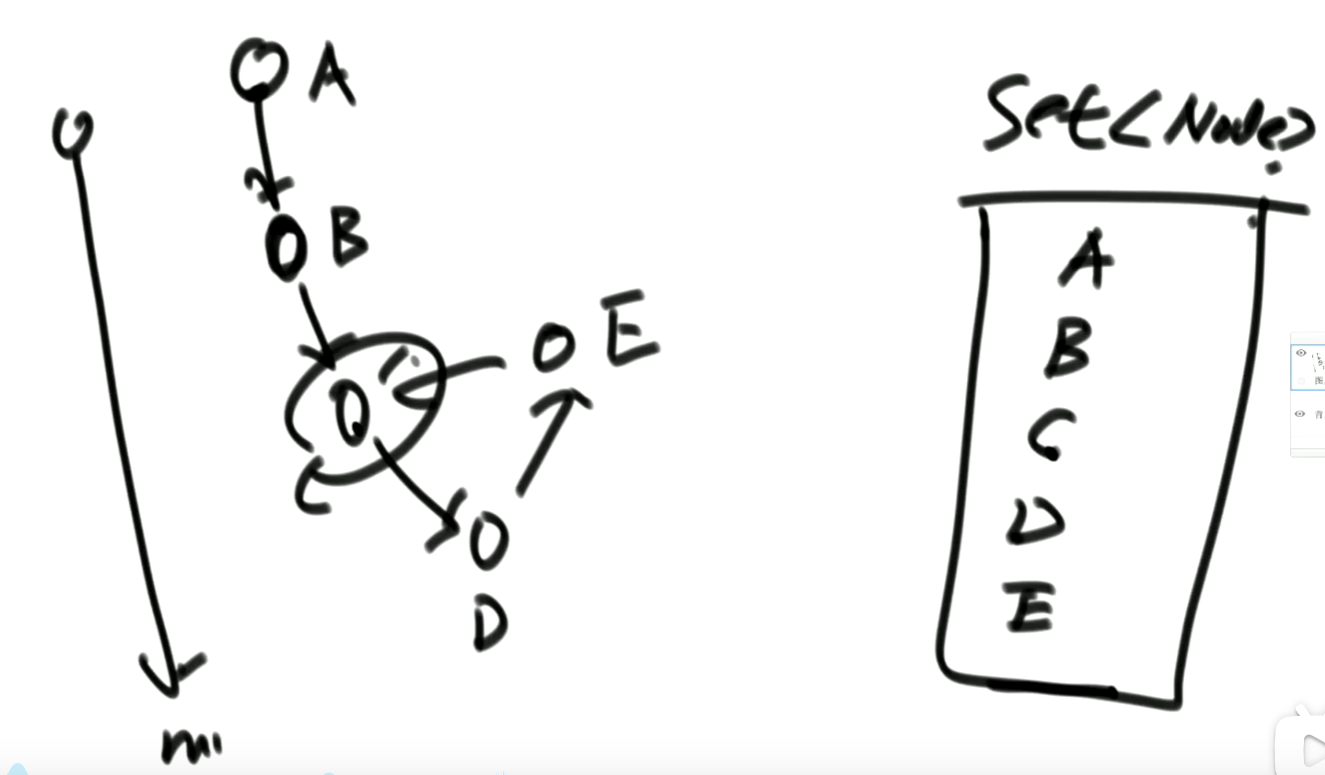 A
B
E
D
Set<Node>
A
B
C
D
E